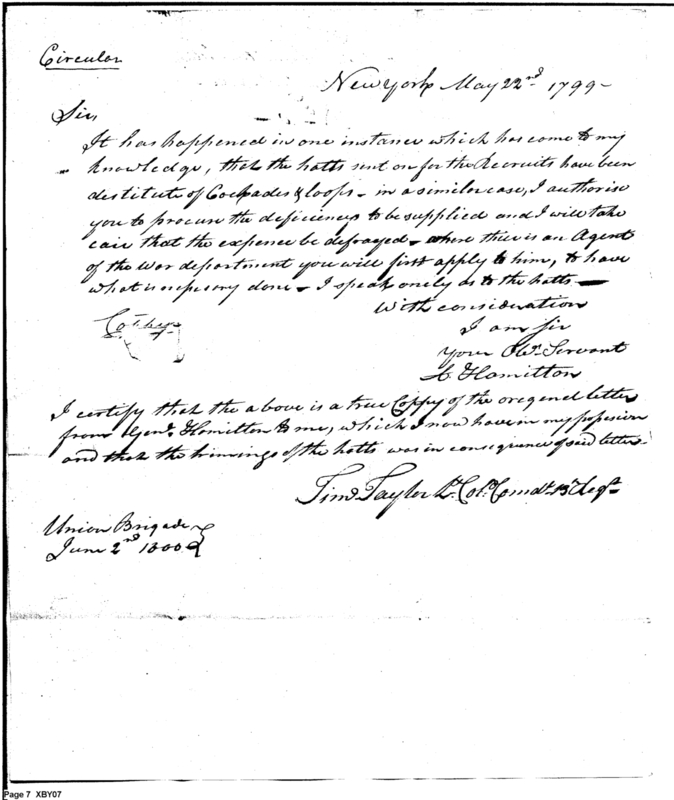 Circular
New York May 22nd. 1799-
Sir,
It has happened in one instance which has come to my
knowledge, that the hatts sent on for the Recruits have been
destitute of Cockades & loops - in a similer case, I authorise
you to procure the deficiency to be supplied and I will take
cair that the expence be defrayed - where thier is an Agent
of the War department you will first apply to him, to have
what is nessesory done - I speak onely as to the hatts -
With consideration
I am Sir
your Obt. Servant
A Hamilton
I certify that the above is a true Coppy of the oregenel letter
from Genl. Hamilton to me, which I now have in my possesion
and that the trimings of the hatts was in consequence of said letter-
Timo. Taylor Lt. Colo. Comdt. 13th Regt.
Union Brigade
June 2nd 1800
Page 7 XBY07